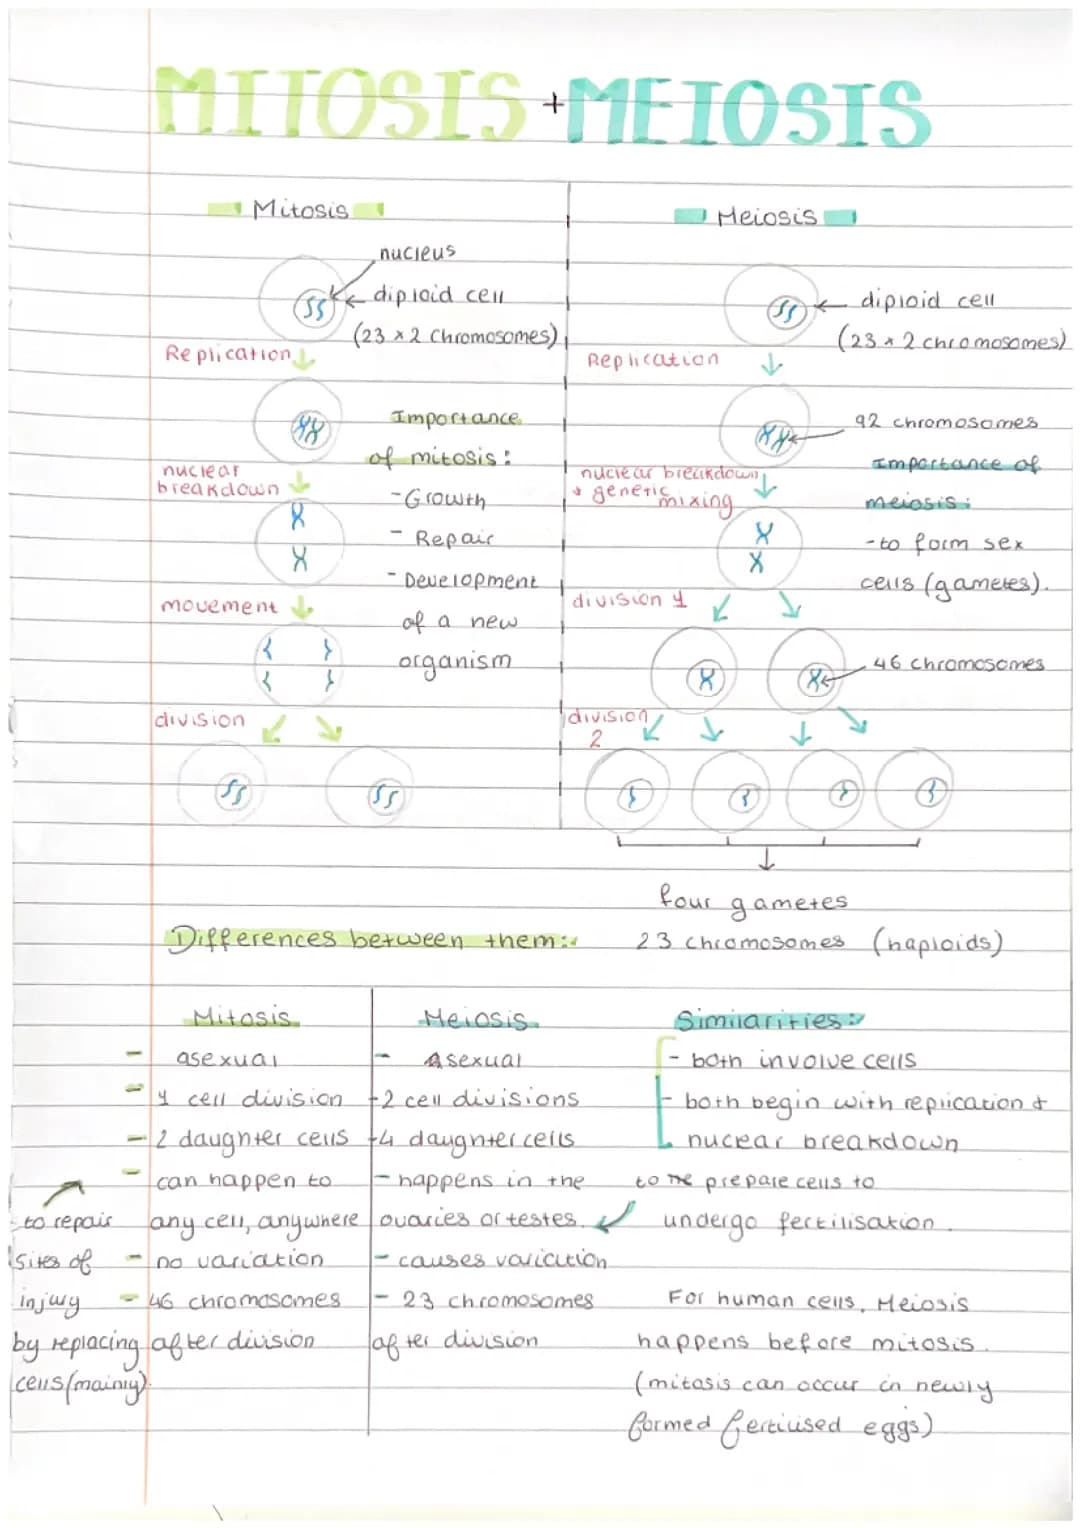 MITOSIS + MEIOSIS
Mitosis
nucleus
diploid cell
(23 x 2 Chromosomes)
Replication
Importance
of mitosis:
nuclear
breakdown
- Growth
- Repair
- Development
of a new
organism
movement
division
Meiosis
diploid cell
(23 x 2 chromosomes)
Replication
92 chromosomes
Importance of
meiosis:
- to form sex
cells (gametes).
nuclear breakdown
+ genetic mixing
division 1
46 chromosomes
division
2
four gametes
23 chromosomes (haploids)
Differences between them:
Mitosis
- asexual
- 1 cell division
- 2 daughter cells
- can happen to
any cell, anywhere
- no variation
- 46 chromosomes
after division
to repair
sites of
injury
by replacing
cells (mainly).
Meiosis
- Asexual
- 2 cell divisions
- 4 daughter cells
- happens in the
ovaries or testes.
- causes variation
- 23 chromosomes
after division
Similarities:
- both involve cells
- both begin with replication +
nucear breakdown
to prepare cells to
undergo fertilisation.
For human cells, Meiosis
happens before mitosis.
(mitosis can occur in newly
formed fertilised eggs)